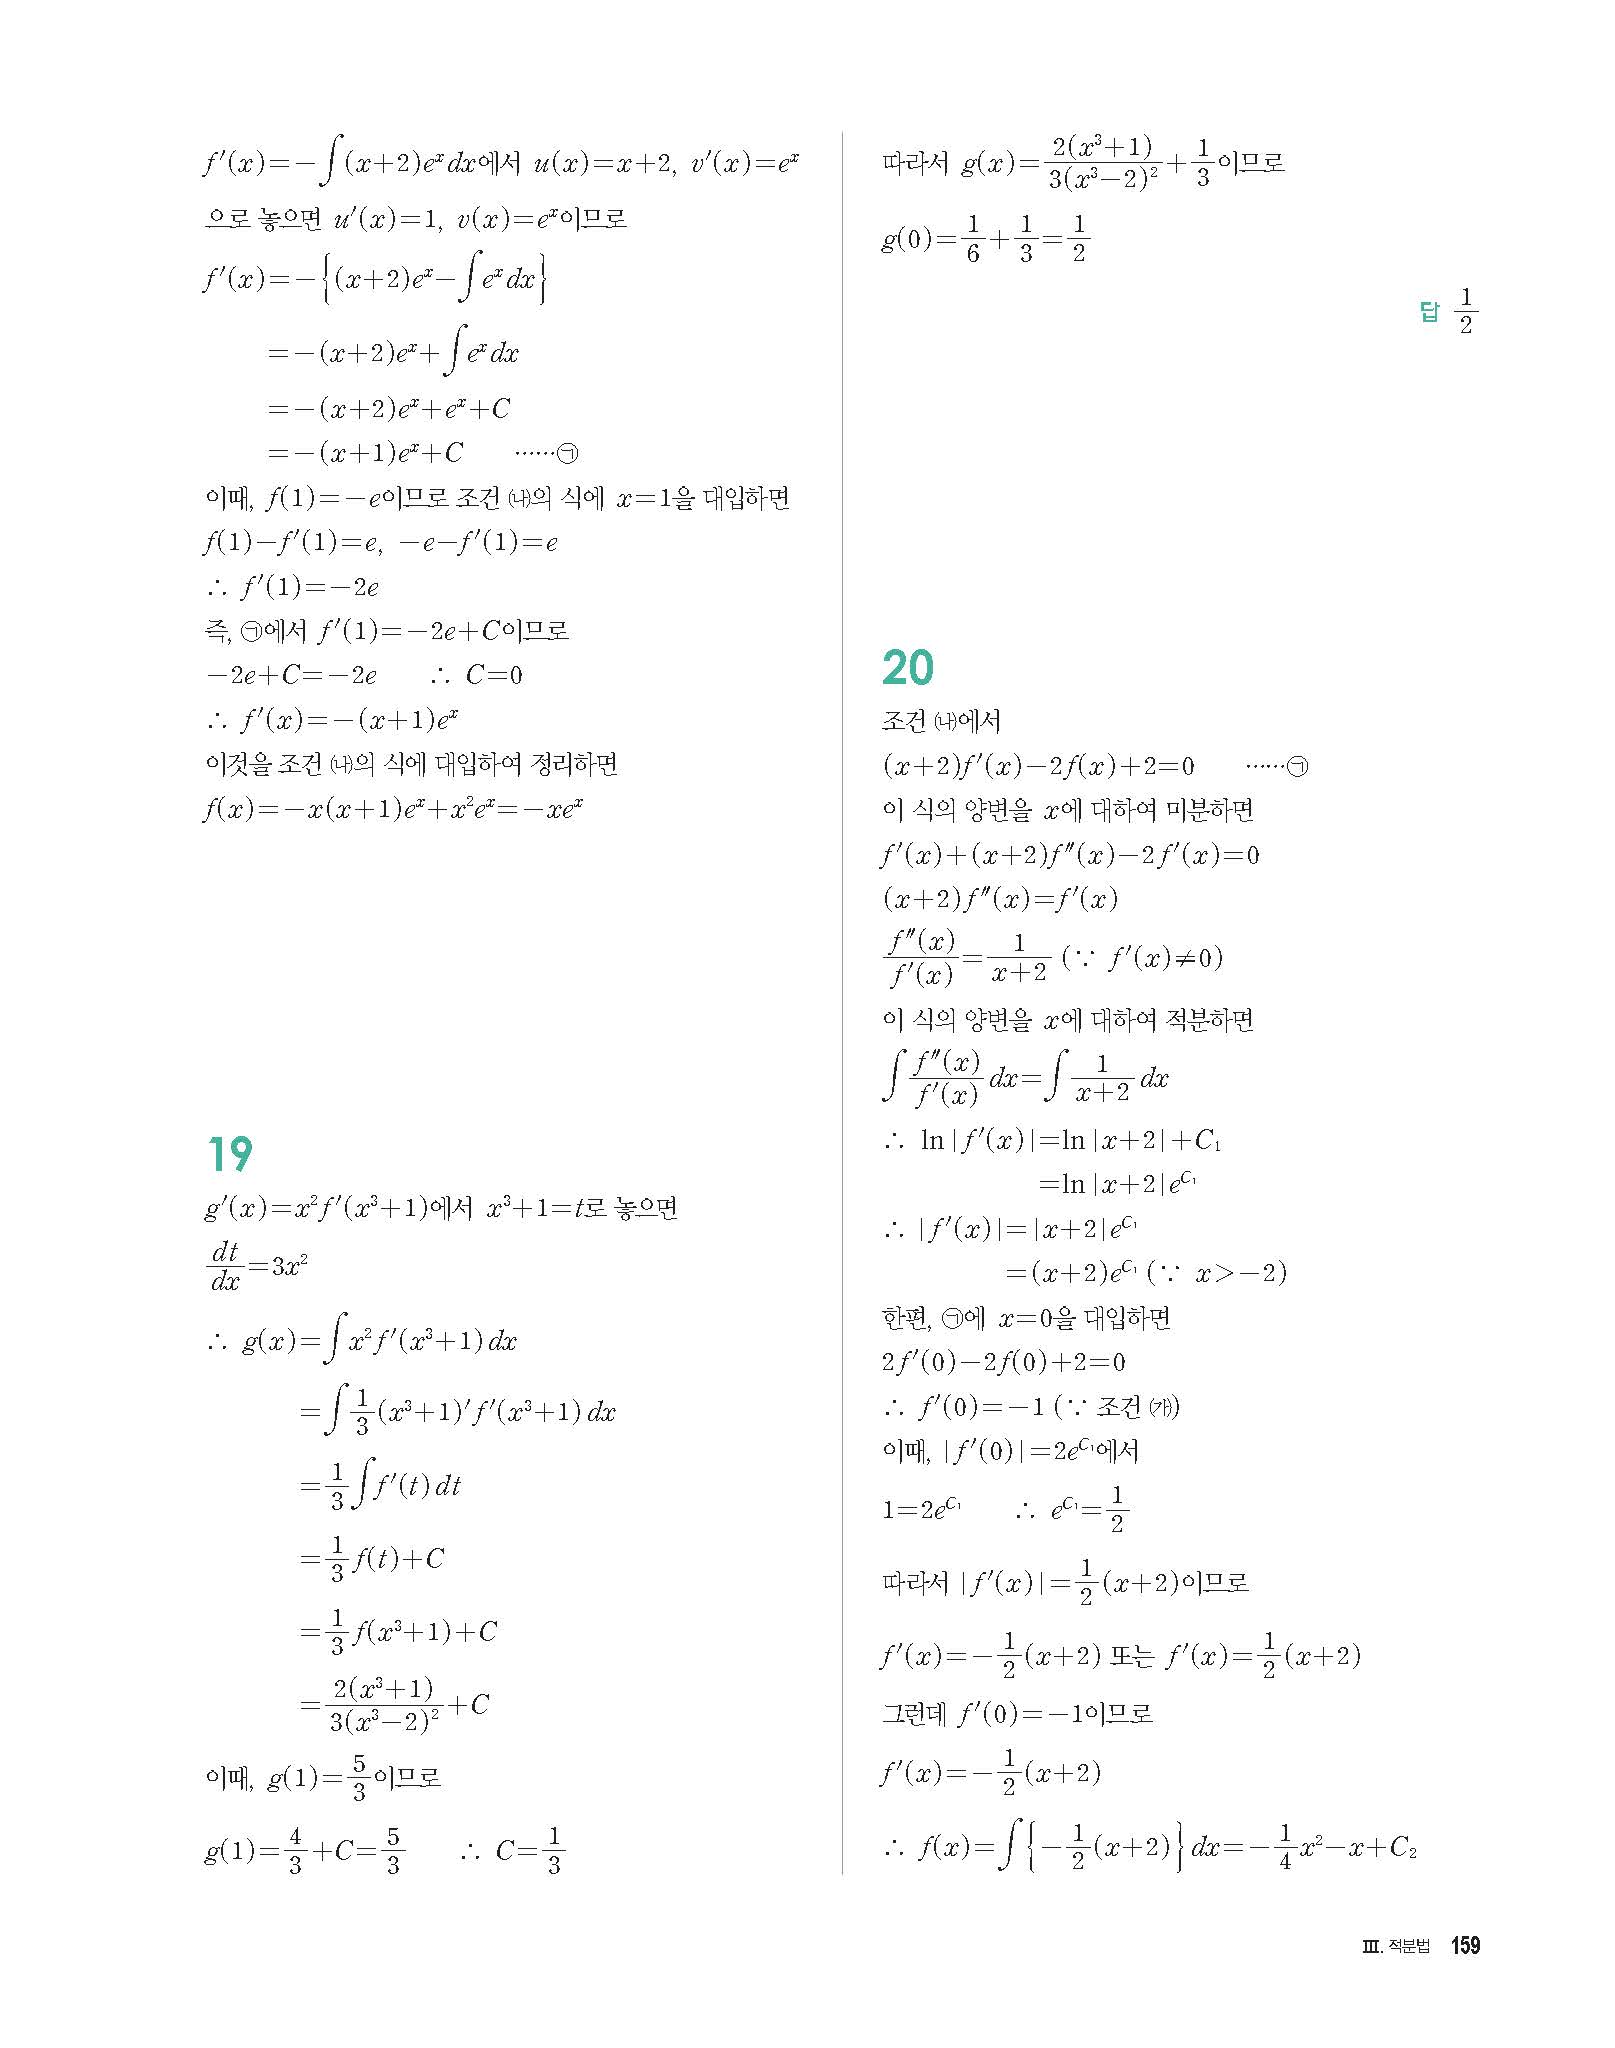 f′(x)=−∫(x+2)eˣdx에서 u(x)=x+2, v′(x)=eˣ
으로 놓으면 u′(x)=1, v(x)=eˣ이므로
f′(x)=−{(x+2)eˣ−∫eˣdx}
=−(x+2)eˣ+∫eˣdx
=−(x+2)eˣ+eˣ+C
=−(x+1)eˣ+C ……㉠
이때, f(1)=−e이므로 조건 ㈏의 식에 x=1을 대입하면
f(1)−f′(1)=e, −e−f′(1)=e
∴ f′(1)=−2e
즉, ㉠에서 f′(1)=−2e+C이므로
−2e+C=−2e ∴ C=0
∴ f′(x)=−(x+1)eˣ
이것을 조건 ㈏의 식에 대입하여 정리하면
f(x)=−x(x+1)eˣ+x²eˣ=−xeˣ
19
g′(x)=x²f′(x³+1)에서 x³+1=t로 놓으면
dt/dx=3x²
∴ g(x)=∫x²f′(x³+1)dx
=∫1/3(x³+1)′f′(x³+1)dx
=1/3∫f′(t)dt
=1/3f(t)+C
=1/3f(x³+1)+C
=2(x³+1)/3(x³−2)²+C
이때, g(1)=5/3이므로
g(1)=4/3+C=5/3 ∴ C=1/3
따라서 g(x)=2(x³+1)/3(x³−2)²+1/3이므로
g(0)=1/6+1/3=1/2
답 1/2
20
조건 ㈏에서
(x+2)f′(x)−2f(x)+2=0 ……㉠
이 식의 양변을 x에 대하여 미분하면
f′(x)+(x+2)f″(x)−2f′(x)=0
(x+2)f″(x)=f′(x)
f″(x)/f′(x)=1/x+2 (∵ f′(x)≠0)
이 식의 양변을 x에 대하여 적분하면
∫f″(x)/f′(x)dx=∫1/x+2dx
∴ ln|f′(x)|=ln|x+2|+C₁
=ln|x+2|e^C₁
∴ |f′(x)|=|x+2|e^C₁
=(x+2)e^C₁ (∵ x>−2)
한편, ㉠에 x=0을 대입하면
2f′(0)−2f(0)+2=0
∴ f′(0)=−1 (∵ 조건 ㈎)
이때, |f′(0)|=2e^C₁에서
1=2e^C₁ ∴ e^C₁=1/2
따라서 |f′(x)|=1/2(x+2)이므로
f′(x)=−1/2(x+2) 또는 f′(x)=1/2(x+2)
그런데 f′(0)=−1이므로
f′(x)=−1/2(x+2)
∴ f(x)=∫{−1/2(x+2)}dx=−1/4x²−x+C₂
Ⅲ. 적분법 159